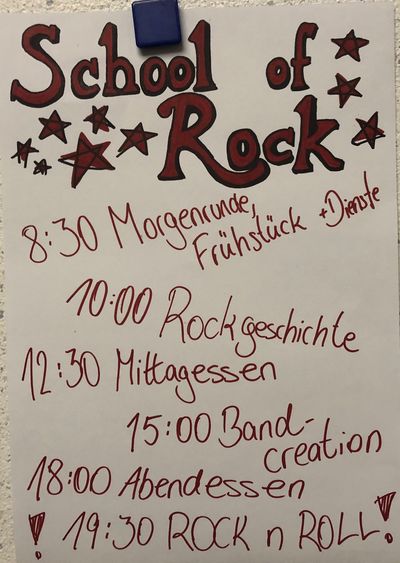 School of
Rock
8:30 Morgenrunde,
Frühstück + Dienste
10:00 Rockgeschichte
12:30 Mittagessen
15:00 Band-
creation
18:00 Abendessen
! 19:30 ROCK n ROLL!